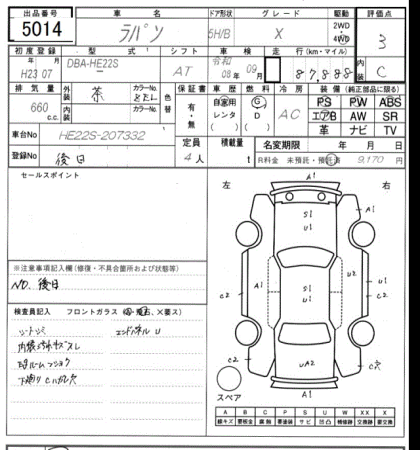 出品番号 車名 ドア形状 グレード 駆動 評価点
5014 ラパン 5H/B X 2WD 4WD 3
初度登録 型式 シフト 車検 走行(km・マイル) 内装
年 月 DBA-HE22S AT 令和 年 月 87,888 C
H23 07 08 09
排気量 外装 茶 カラーNo. 色替 保証書 車歴 燃料 冷房 装備(純正部品に限る)
660 c.c. 内装 カラーNo. 有・無 自家用 レンタ ( ) G D ( ) AC PS PW ABS
エアB AW SR
革 ナビ TV
車台No HE22S-207332 定員 積載量 名変期限 年 月 日
登録No 後日 4人 t R料金 未預託・預託済 9,170 円
セールスポイント 左 右
A1
A1
S1
U1
A1 S1 U1 U2 A1
C2 C2
C2 C穴
UA2
A1
スペア
※注意事項記入欄(修復・不具合箇所および状態等)
NO. 後日
検査員記入 フロントガラス (・、X要ス)
エンドパネル U
A B C P S U W X XX
線キズ 要板金 腐食 要塗装 サビ 凹凸 補修跡 交換跡 要交換